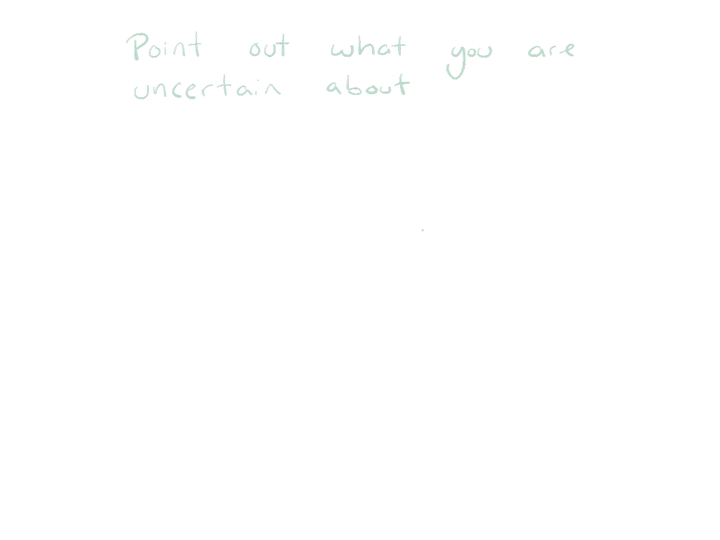 Point out what you are
uncertain about